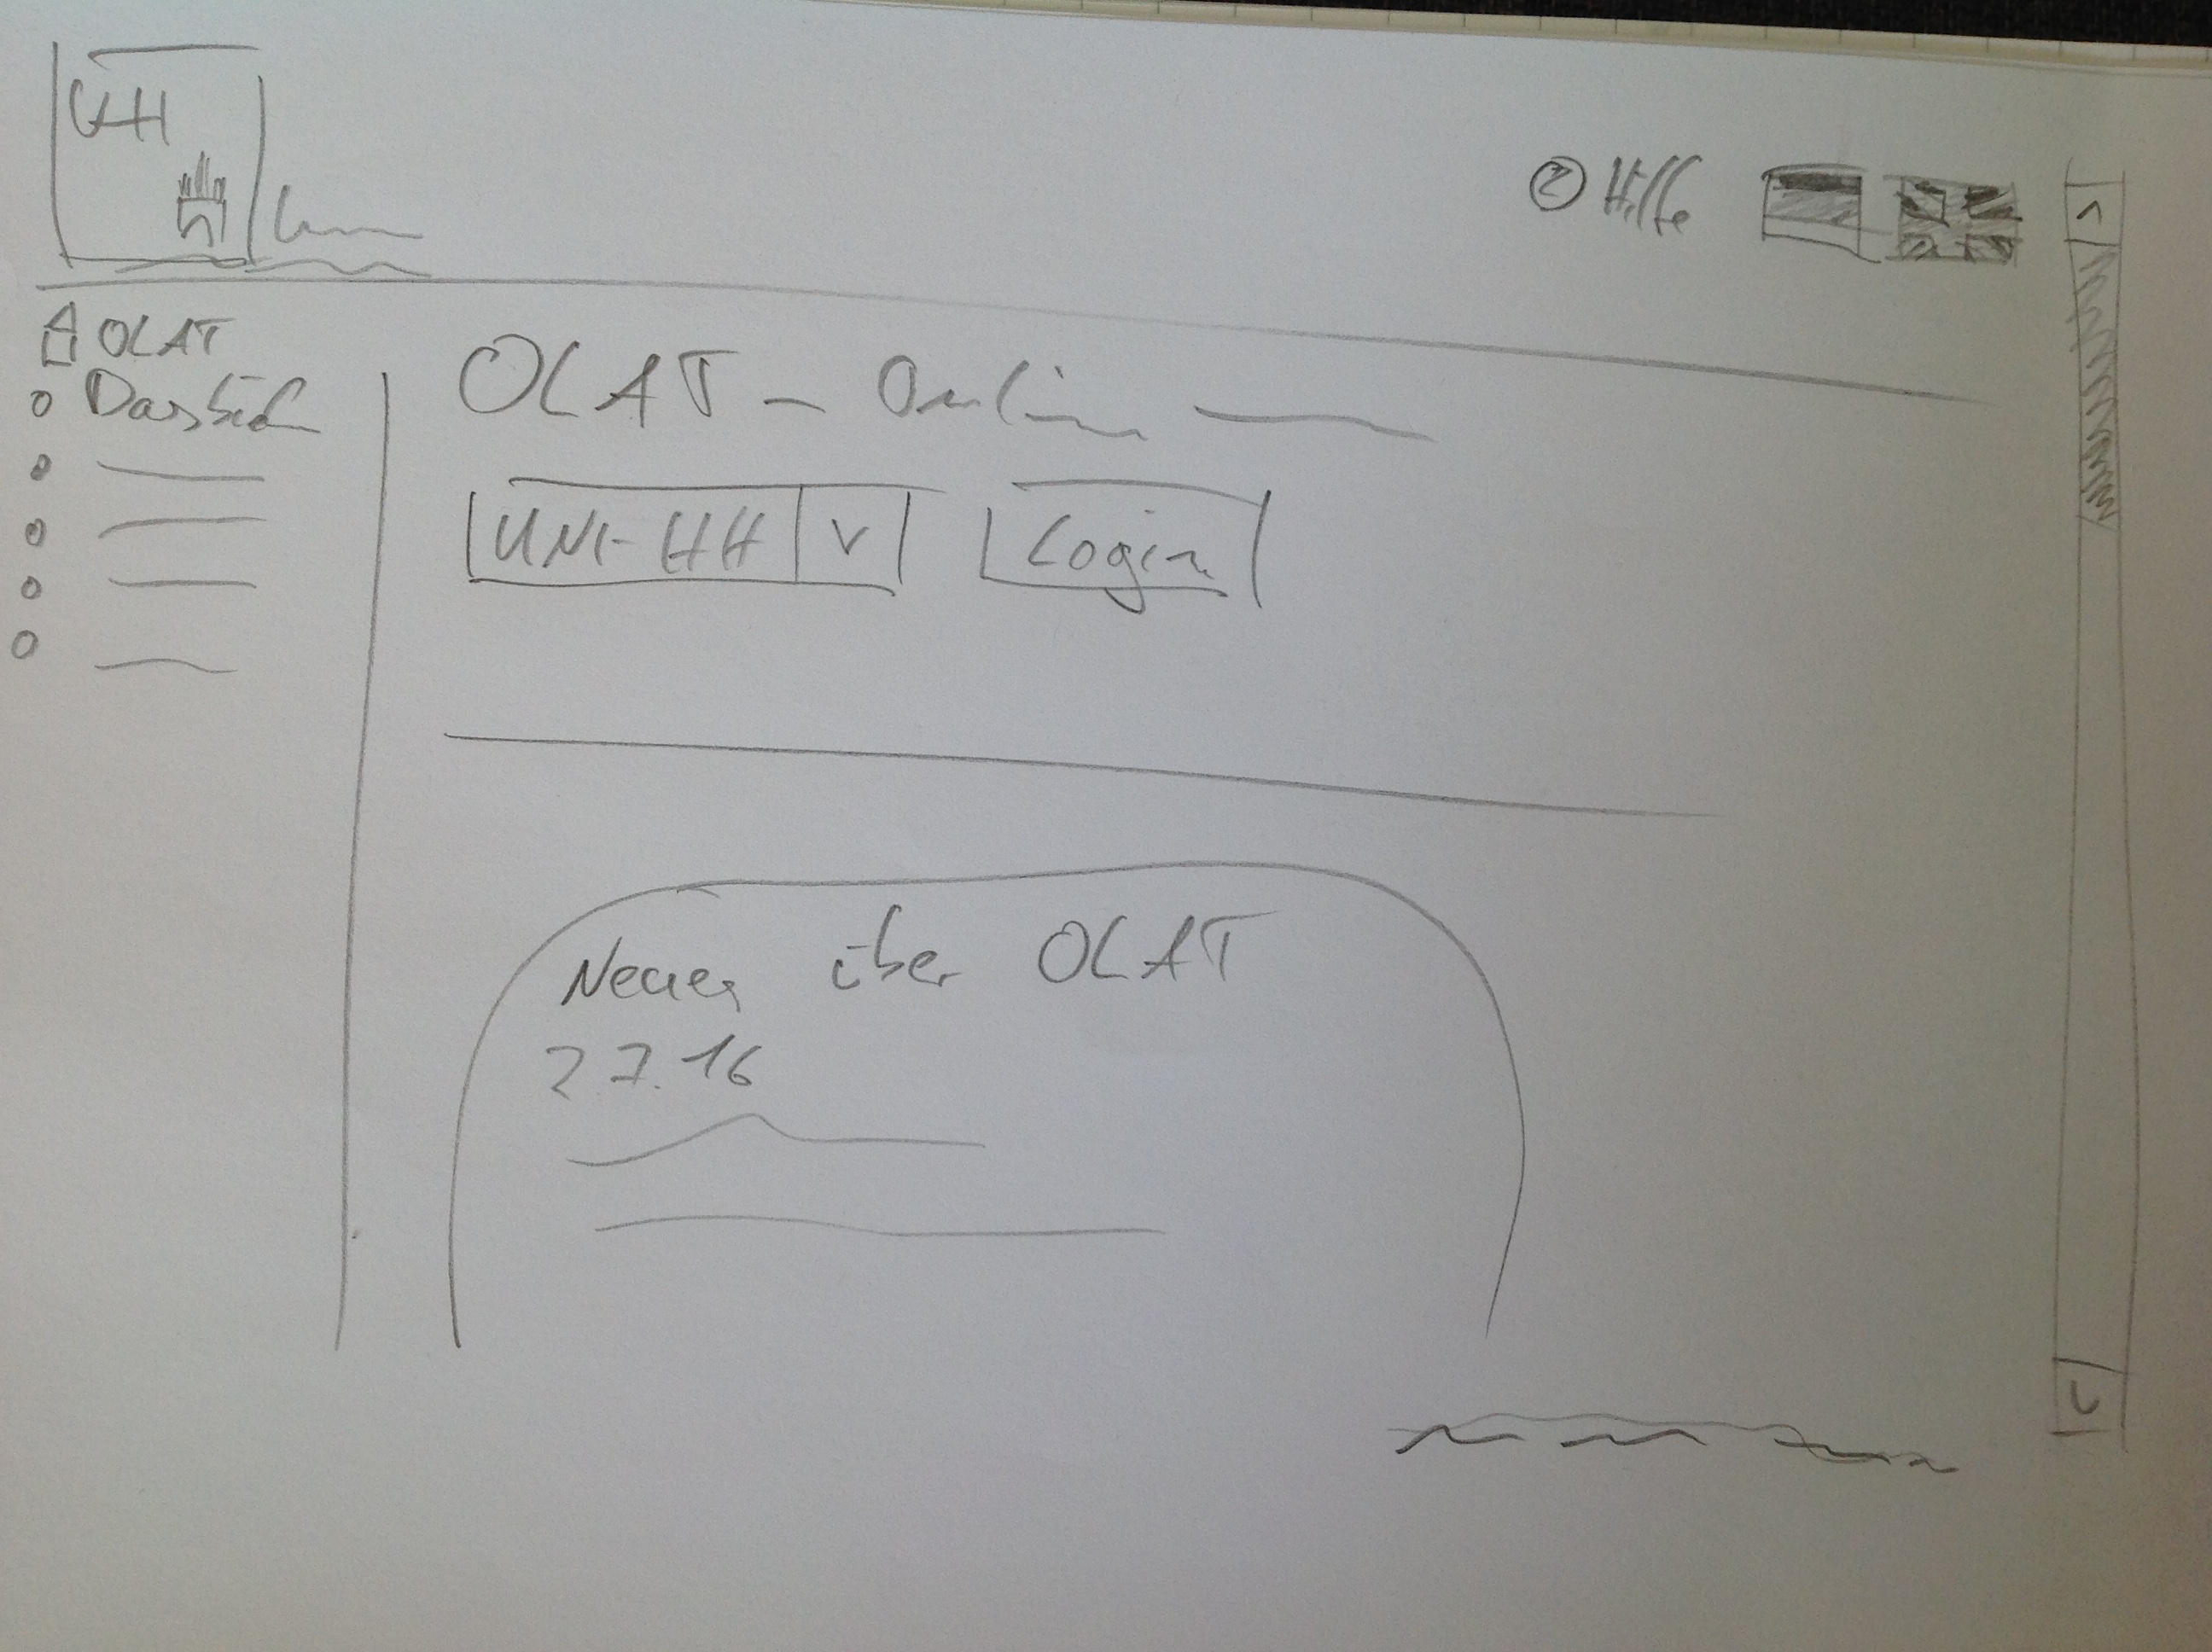 UHH
Hilfe
OLAT
OLAT - Online
UNI-HH
Login
Neues über OLAT
2 7.16